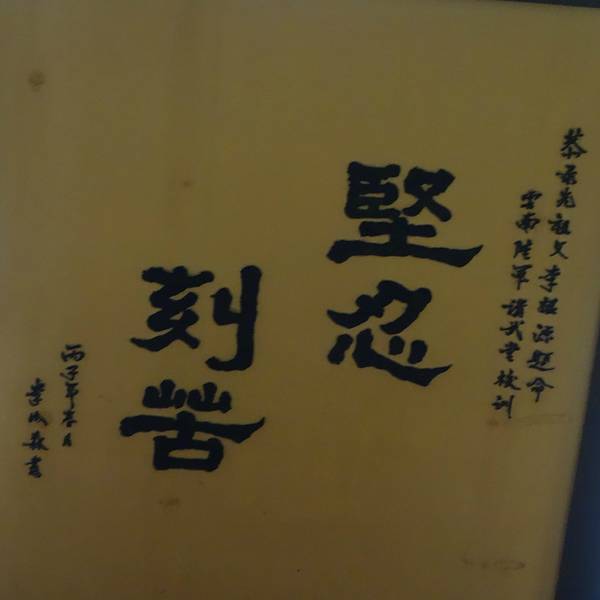 恭录先祖父李根源题命
云南陆军講武堂校训
堅忍
刻苦
丙子年冬月
李成森書